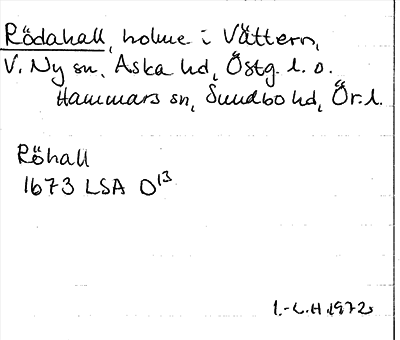 Rödahall, holme i Vättern,
V. Ny sn, Aska hd, Östg. l. o.
Hammars sn, Sundbo hd, Ör. l.
Röhall
1673 LSA D¹³
I.-L.H 1972